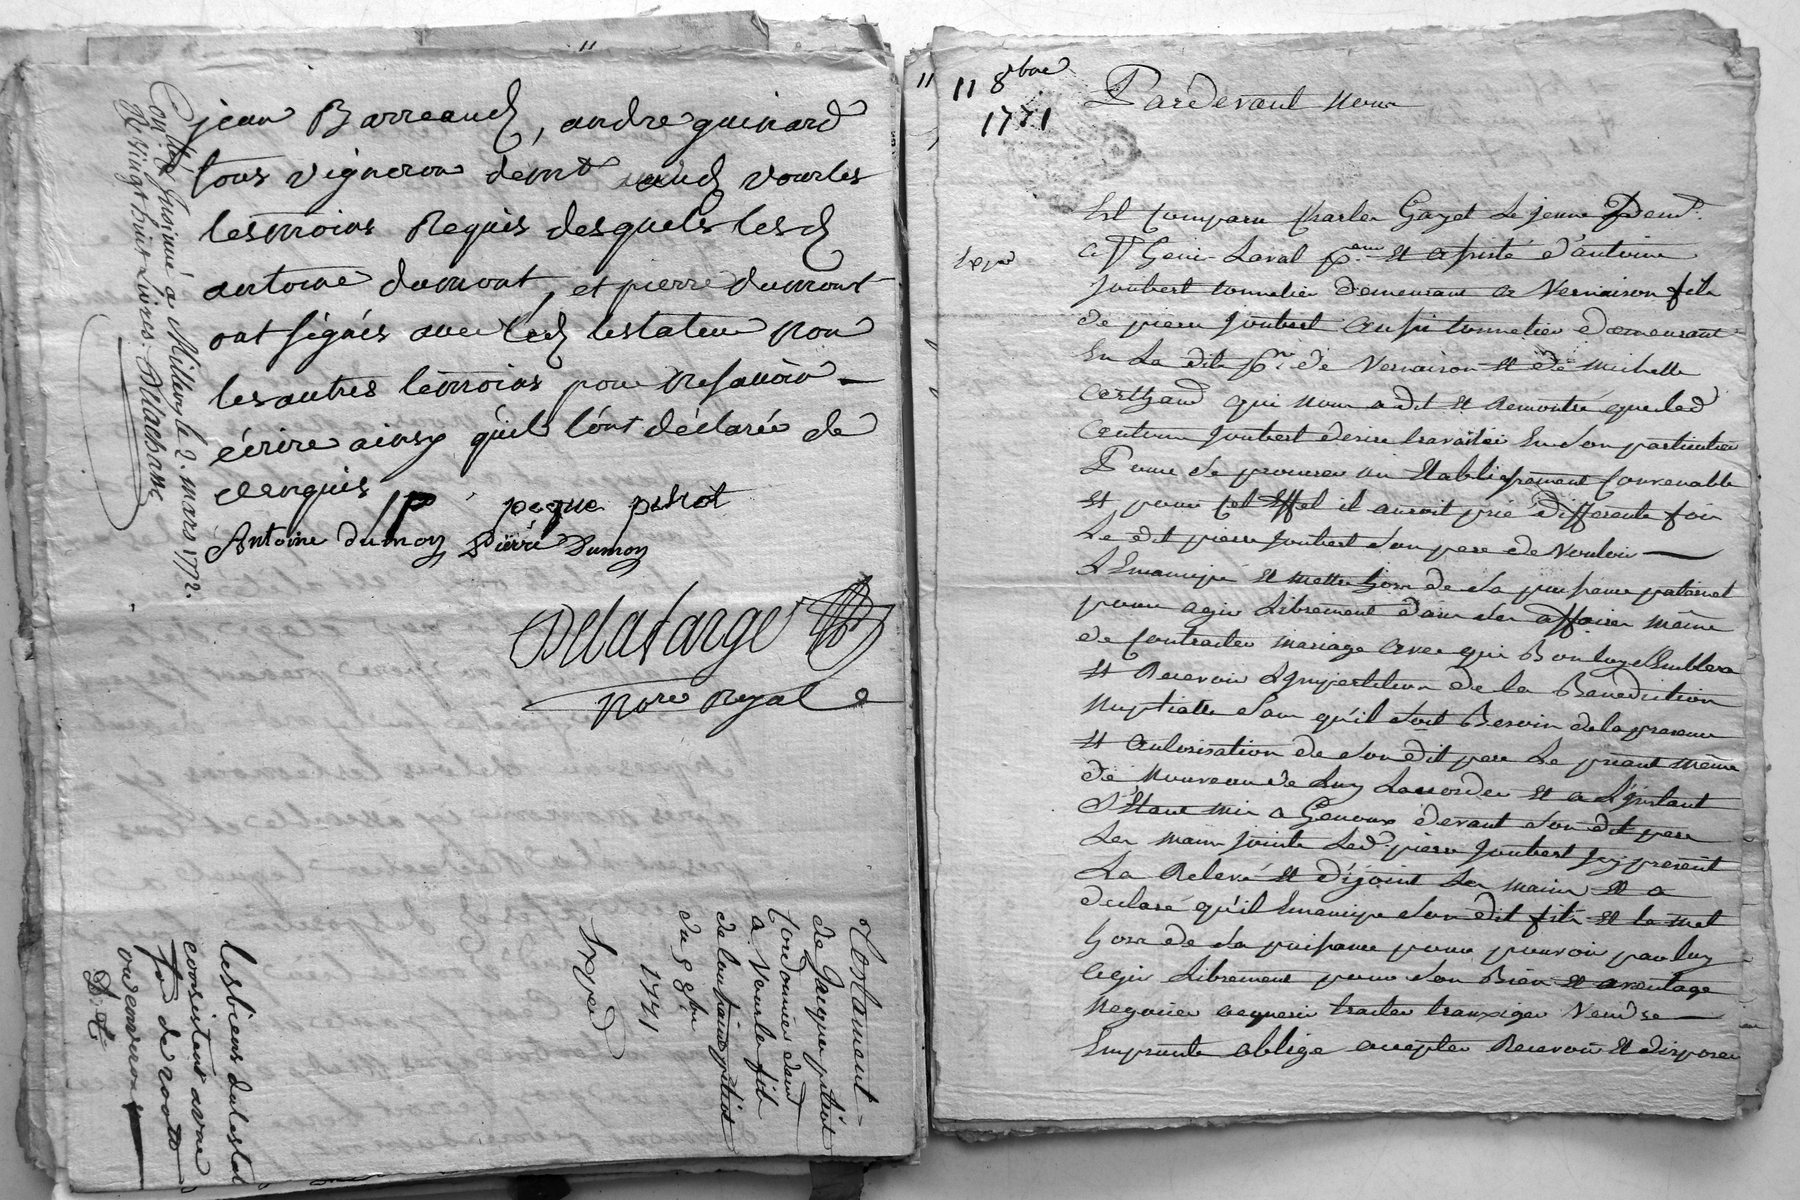 jean Barreaud, andre guinard
tous vignerons demt aud vourles
tesmoins Requis desquels lesd
antoine dumont, et pierre dumont
ont signés avec led testateur non
les autres témoins pour ne savoir
écrire ainsy quils l'ont déclarés de
ce enquis
Antoine dumon pierre Dumon
Delafarge
Nore Royal
Collé Insinué a Millery le 2. mars 1772.
vingt huit Livres. Delachasse
Testament
de Jacques
cordonnier demt
a Vourle fils
du 9 8bre
1771
Exped
les biens du testat
consistent avec
de 200
environs
D. L.
11 8bre
1771
Exped
Pardevant nous
Est Comparu Charles Gayet Le jeune Demt.
a St Genis Laval et assisté d'antoine
Joubert tonnelier demeurant a Vernaison fils
de pierre Joubert aussi tonnelier demeurant
En La dite psse de Vernaison et de michelle
qui nous a dit et Remontré que led
antoine Joubert desire travailler En son particulier
Pour se procurer un Etablissement Convenable
Et pour Cet Effet il auroit prié differente fois
Le dit pierre Joubert son pere de Vouloir
L'Emanciper et mettre hors de sa puissance paternel
pour agir Librement dans ses affaires même
de Contracter mariage avec qui Bon luy Semblera
Et Recevoir L'impartition de la Benediction
Nuptialle sans qu'il soit Besoin de la presence
Et autorisation de son dit pere Le priant même
de Nouveau de Luy L'accorder Et a L'instant
S'Etant mis a Genoux devant son dit pere
Les mains jointe Led pierre Joubert Icy present
La Relevé et Déjoint Les mains et a
declaré qu'il Emancipe son dit fils et le met
hors de sa puissance pour pouvoir par luy
agir Librement pour son Bien et avantage
Negocier acquerir traiter tranxiger Vendre
Emprunte oblige accepter Recevoir et disposer